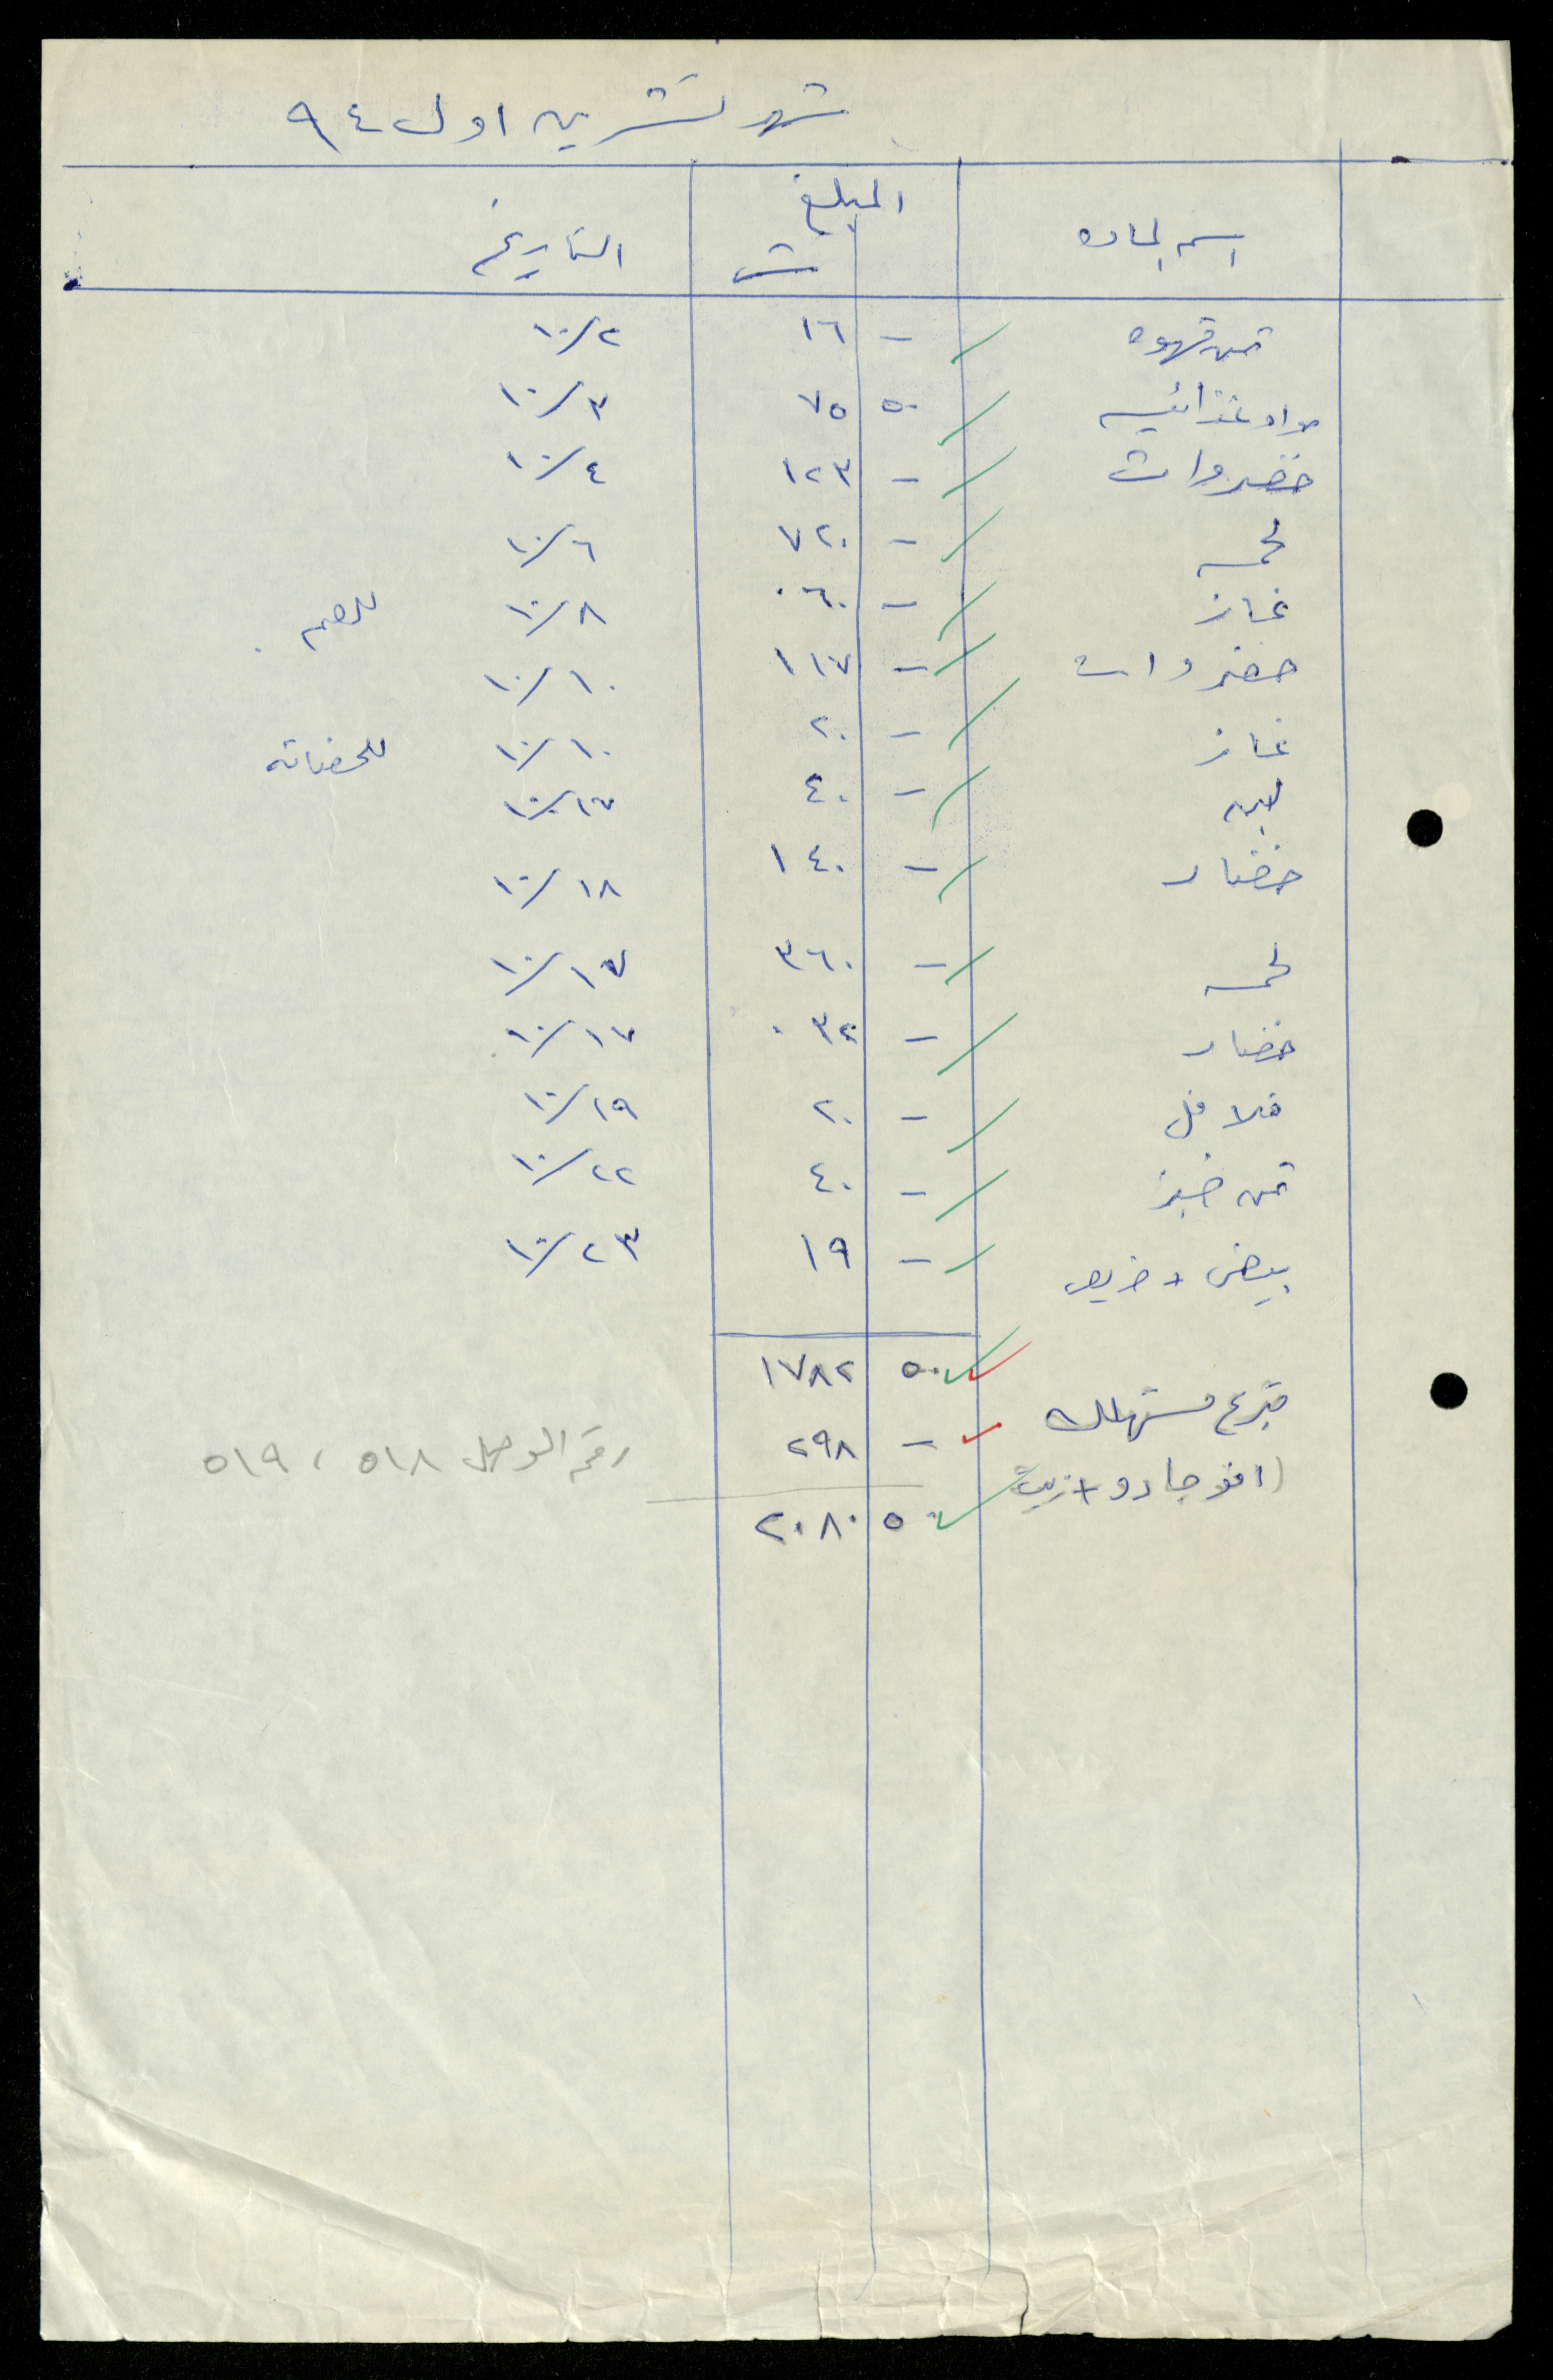 شهر تشرين اول ٩٤
اسم المادة المبلغ التاريخ
ش
ثمن قهوه - ١٦ ٢/١٠
مواد غذائيه ٥٠ ٧٥ ٣/١٠
خضروات - ١٢٣ ٤/١٠
لحمه - ٧٢٠ ٦/١٠
غاز - ٠٦٠ ٨/١٠
خضروات - ١١٧ ١٠/١٠
غاز - ٢٠ ١٠/١٠ للحضانه
لبن - ٤٠ ١٧/١٠
خضار - ١٤٠ ١٨/١٠
لحمه - ٣٦٠ ١٧/١٠
خضار - ٠٣٢ ١٧/١٠
فلافل - ٢٠ ١٩/١٠
ثمن خبز - ٤٠ ٢٢/١٠
بيض + - ١٩ ٢٣/١٠
٥٠ ١٧٨٢
تبرع مستهلك - ٢٩٨ رقم الوصل ٥١٨ ، ٥١٩
(افوجادو + زيت
٥٠ ٢٠٨٠